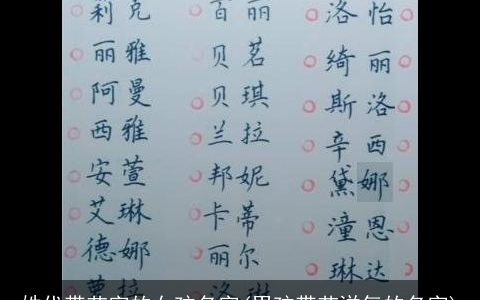 莉克 百丽 洛怡
丽雅 贝茗 绮丽
阿曼 贝琪 斯洛
西雅 兰拉 辛西
安萱 邦妮 黛娜
艾琳 卡蒂 潼恩
德娜 丽尔 琳达
字的女孩名字(男孩 洋气的名字)